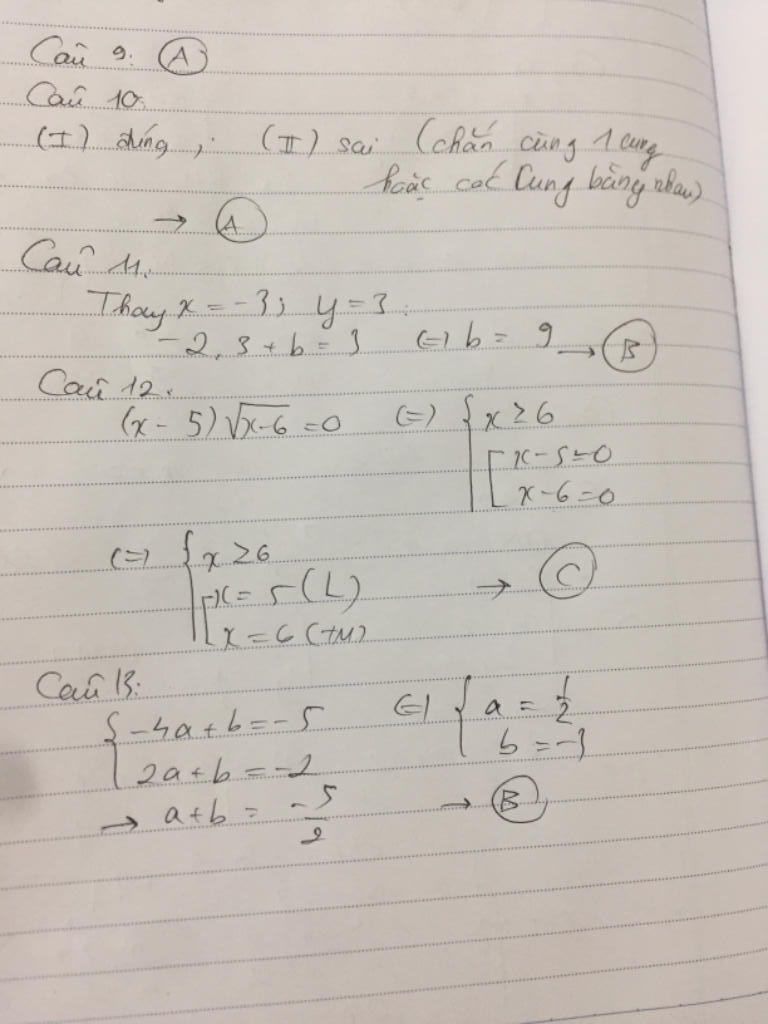 Câu 9. A
Câu 10.
(I) đúng, (II) sai (chắn cùng 1 cung
hoặc các cung bằng nhau)
→ A
Câu 11.
Thay x = -3; y = 3:
-2.3 + b = 3 (=) b = 9 → B
Câu 12.
(x - 5)√x-6 = 0 (=) { x ≥ 6
[ x-5=0
x-6=0
(=) { x ≥ 6
[ x = 5 (L) → C
x = 6 (TM)
Câu 13:
{ -4a+b = -5 (=) { a = 1/2
2a+b = -2 b = -3
→ a+b = -5/2 → B